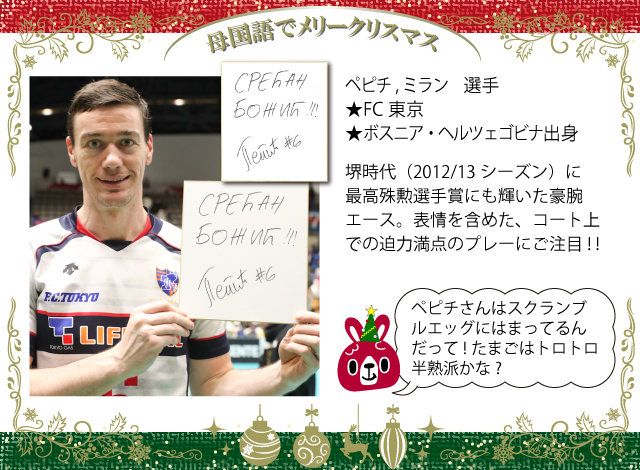 母国語でメリークリスマス
СРЕЋАН
БОЖИЋ !!!
Пешић #6
ペピチ , ミラン 選手
★FC 東京
★ボスニア・ヘルツェゴビナ出身
堺時代（2012/13 シーズン）に
最高殊勲選手賞にも輝いた豪腕
エース。表情を含めた、コート上
での迫力満点のプレーにご注目 ! !
СРЕЋАН
БОЖИЋ !!!
#6
F.C.TOKYO
LIF
TOKYO-GAS
ペピチさんはスクランブ
ルエッグにはまってるん
だって ! たまごはトロトロ
半熟派かな ?